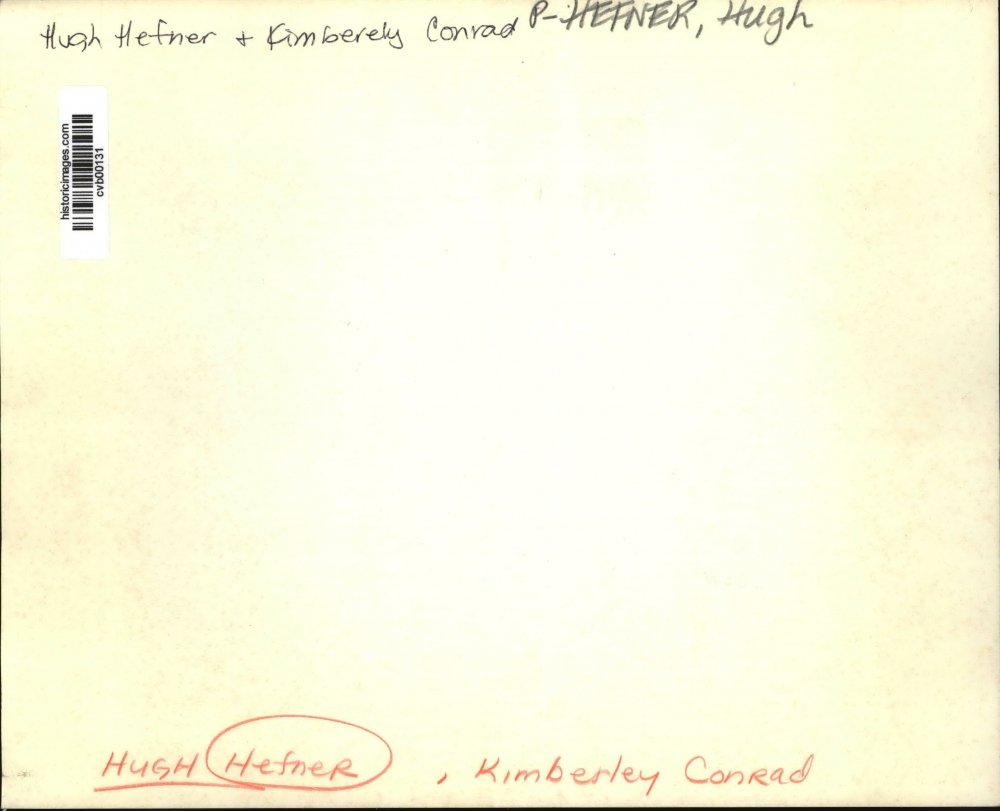 Hugh Hefner + Kimberely Conrad P-HEFNER, Hugh
historicimages.com
cvb00131
HUGH HefneR , Kimberley ConRad